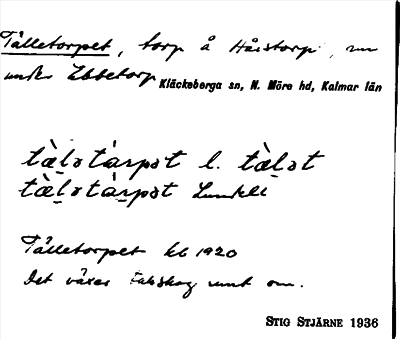 Tålletorpet, torp å Håstorp, nu
under Ebbetorp Kläckeberga sn, N. Möre hd, Kalmar län
tæ̀l̠ətàrpət l. tæ̀l̠ət
tæ̀l̠ətàr̠pət Lundell
Tålletorpet kb 1920
Det växer tallskog runt om.
STIG STJÄRNE 1936